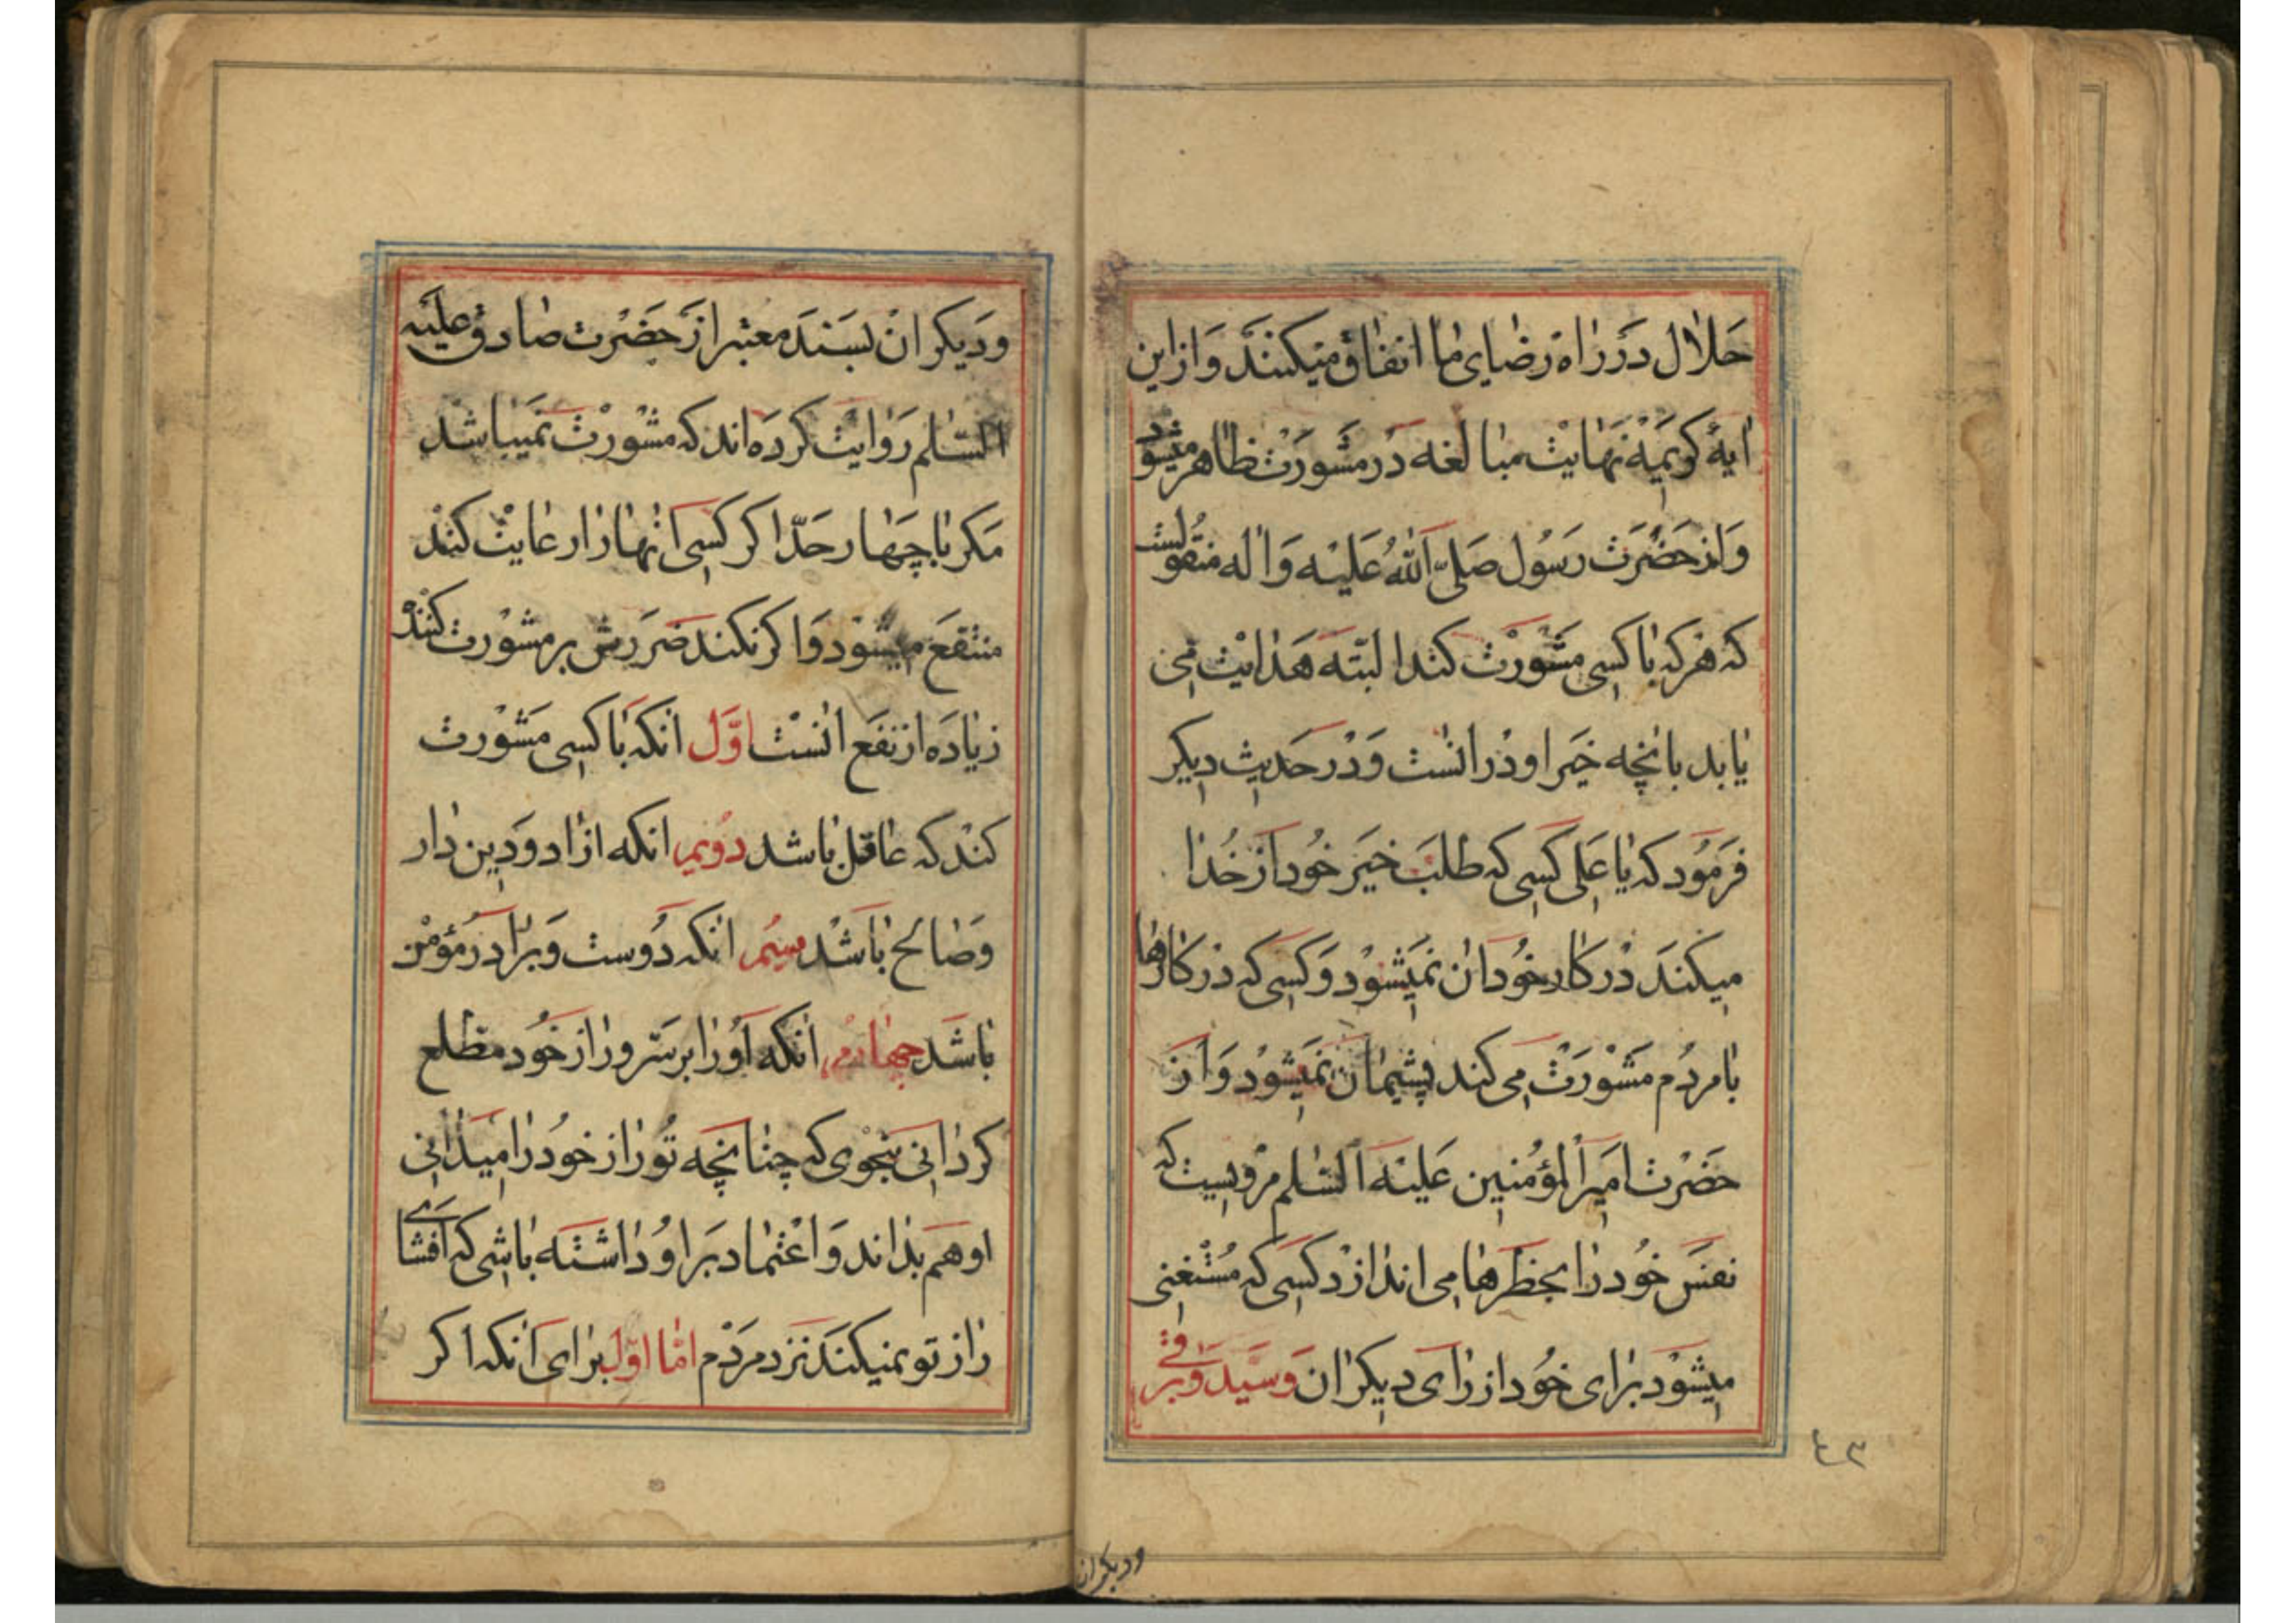 حلال در راه رضای ما انفاق میکنند و از این
ایهٔ کریمه نهایت مبالغه در مشورت ظاهر میشود
و از حضرت رسول صلی الله علیه و اله منقولست
که هر که با کسی مشورت کند البته هدایت می
یابد بانچه خیر او در انست و در حدیث دیکر
فرمود که یا علی کسی که طلب خیر خود از خدا
میکند در کار خود ان نمیشود و کسی که در کارها
با مردم مشورت می کند پشیمان نمیشود و از
حضرت امیرالمؤمنین علیه السلم مرویست که
نفس خود را بخطرها می اندازد کسی که مستغنی
میشود برای خود از رای دیکران و سید و برقی
۴۳
ودیکران
و دیکران بسند معتبر از حضرت صادق علیه
السلم روایت کرده اند که مشورت نمیباشد
مکر با چهار حد اکر کسی انها را رعایت کند
منتفع میشود و اکر نکند ضررش بر مشورت کننده
زیاده از نفع انست اوّل انکه با کسی مشورت
کند که عاقل باشد دویم انکه ازاد و دین دار
و صالح باشد سیم انکه دوست و برادر مؤمن
باشد چهارم انکه او را بر سر و راز خود مطلع
کردانی بنحوی که چنانچه تو راز خود را میدانی
او هم بداند و اعتماد بر او داشته باشی که افشای
راز تو نمیکند نزد مردم امّا اوّل برای انکه اکر